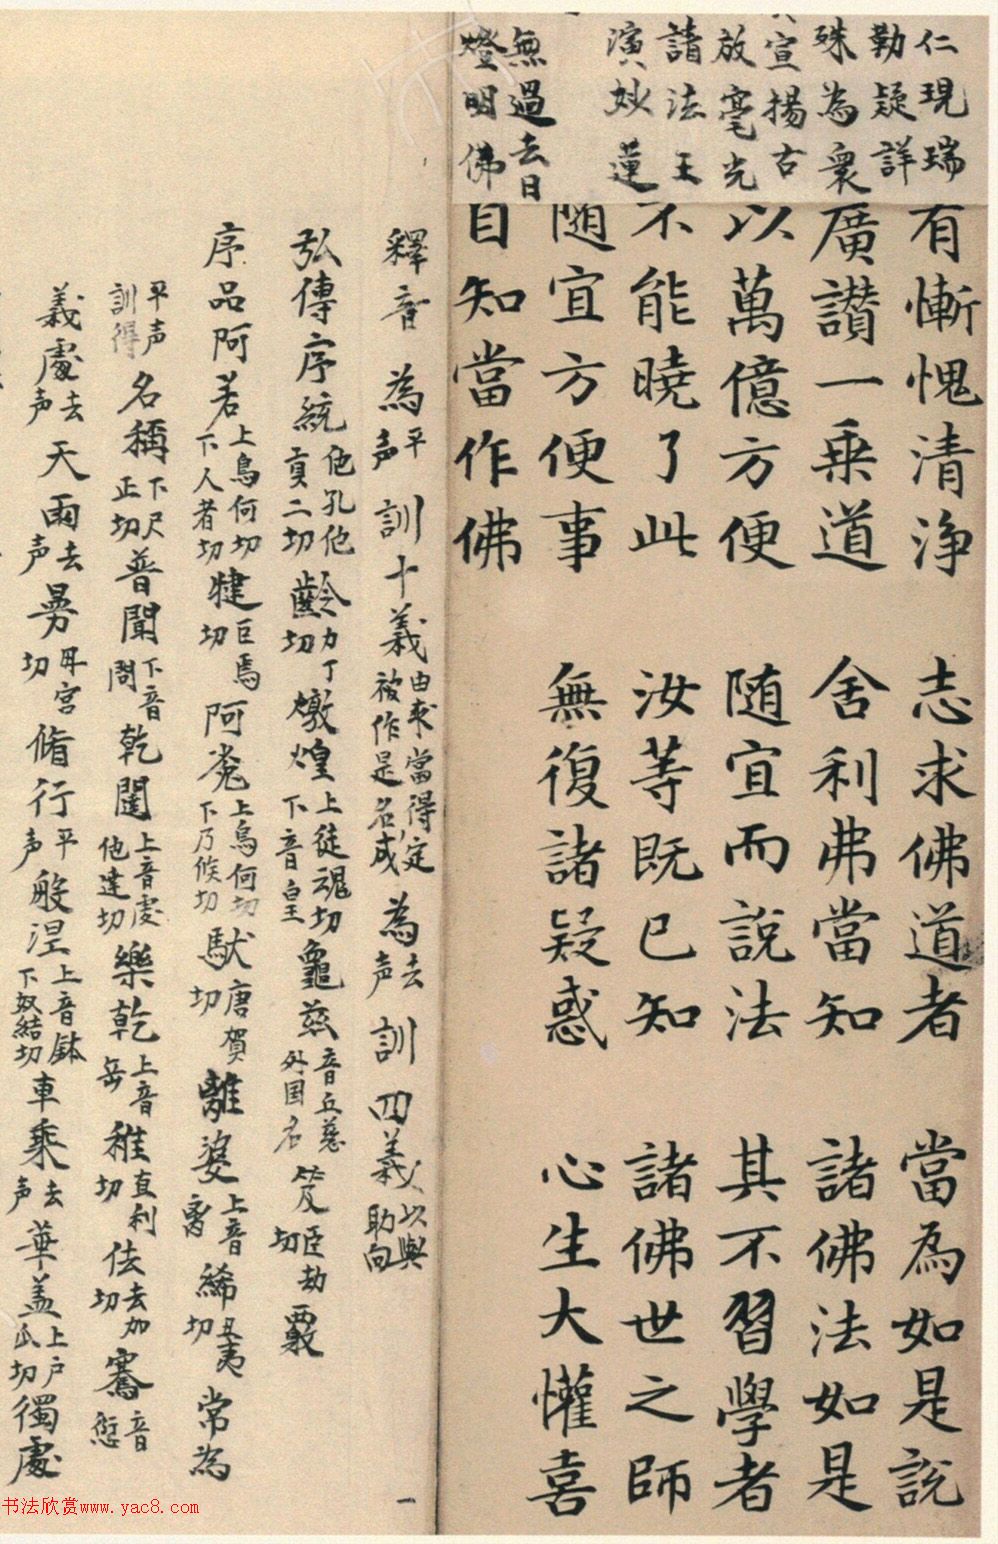 仁現瑞
勒疑詳
殊為衆
宣揚古
放毫光
請法王
演妙蓮
無過去日
燈明佛
有慚愧清淨 志求佛道者 當為如是說
廣讃一乗道 舍利弗當知 諸佛法如是
以萬億方便 随宜而說法 其不習學者
不能曉了此 汝等既已知 諸佛世之師
随宜方便事 無復諸疑惑 心生大懽喜
自知當作佛
釋音 為平声 訓十義由求當得定被作是名成 為去声 訓四義以與助向
弘傳序統他孔他貢二切齡力丁切燉煌上徒魂切下音皇龜兹音丘慈外国名笈臣劫切覈
序品阿若上烏何切下人者切揵巨焉切阿㝹上烏何切下乃候切馱唐賀切離婆上音离絺丑夷切常為
平声訓得名稱下尺正切普聞下音問乾闥上音虔他達切樂乾上音岳稚直利切佉去加切騫音愆
義處去声天雨去声曼毋官切脩行平声般涅上音鉢下奴結切車乘去声華盖上户瓜切獨處
一
书法欣赏www.yac8.com